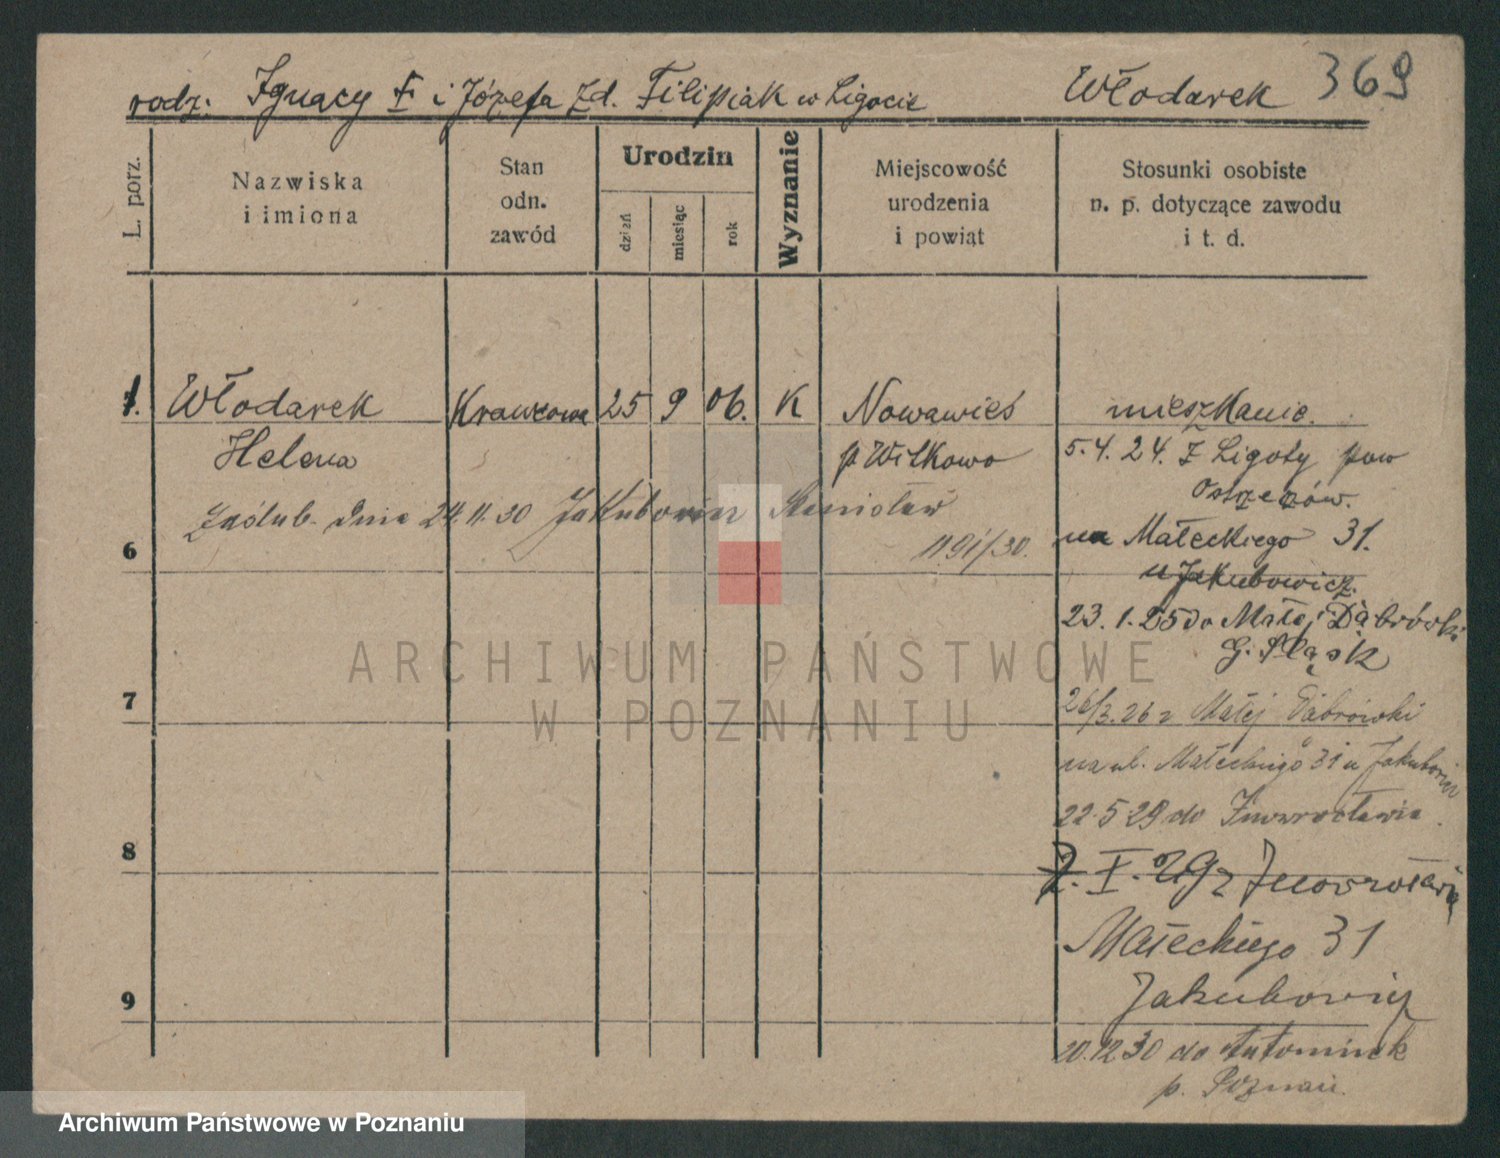 rodz: Ignacy F i Józefa Zd. Filipiak w Ligocie Włodarek 369
L. porz.
Nazwiska
i imiona
Stan
odn.
zawód
Urodzin
dzień
miesiąc
rok
Wyznanie
Miejscowość
urodzenia
i powiat
Stosunki osobiste
n. p. dotyczące zawodu
i t. d.
1. Włodarek Krawcowa 25 9 06. K Nowawieś mieszkanie.
Helena p Witkowo 5.4.24. Z Ligoty pow
Ostrzeszów.
Zaślub. dnia 24.11.30 Jakubowicz Stanisław
na Małeckiego 31.
6 1191/30.
u Jakubowicz.
23.1.25 do Małej Dąbrówki
G. Śląsk
7 26/3.26 z Małej Dąbrówki
na ul. Małeckiego 31 u Jakubowicz
22.5.29 do Inowrocławia
8 2.X.29 z Inowrocławia
Małeckiego 31
Jakubowicz
9
20.12.30 do Antoninek
p. Poznań.
ARCHIWUM PAŃSTWOWE
W POZNANIU
Archiwum Państwowe w Poznaniu